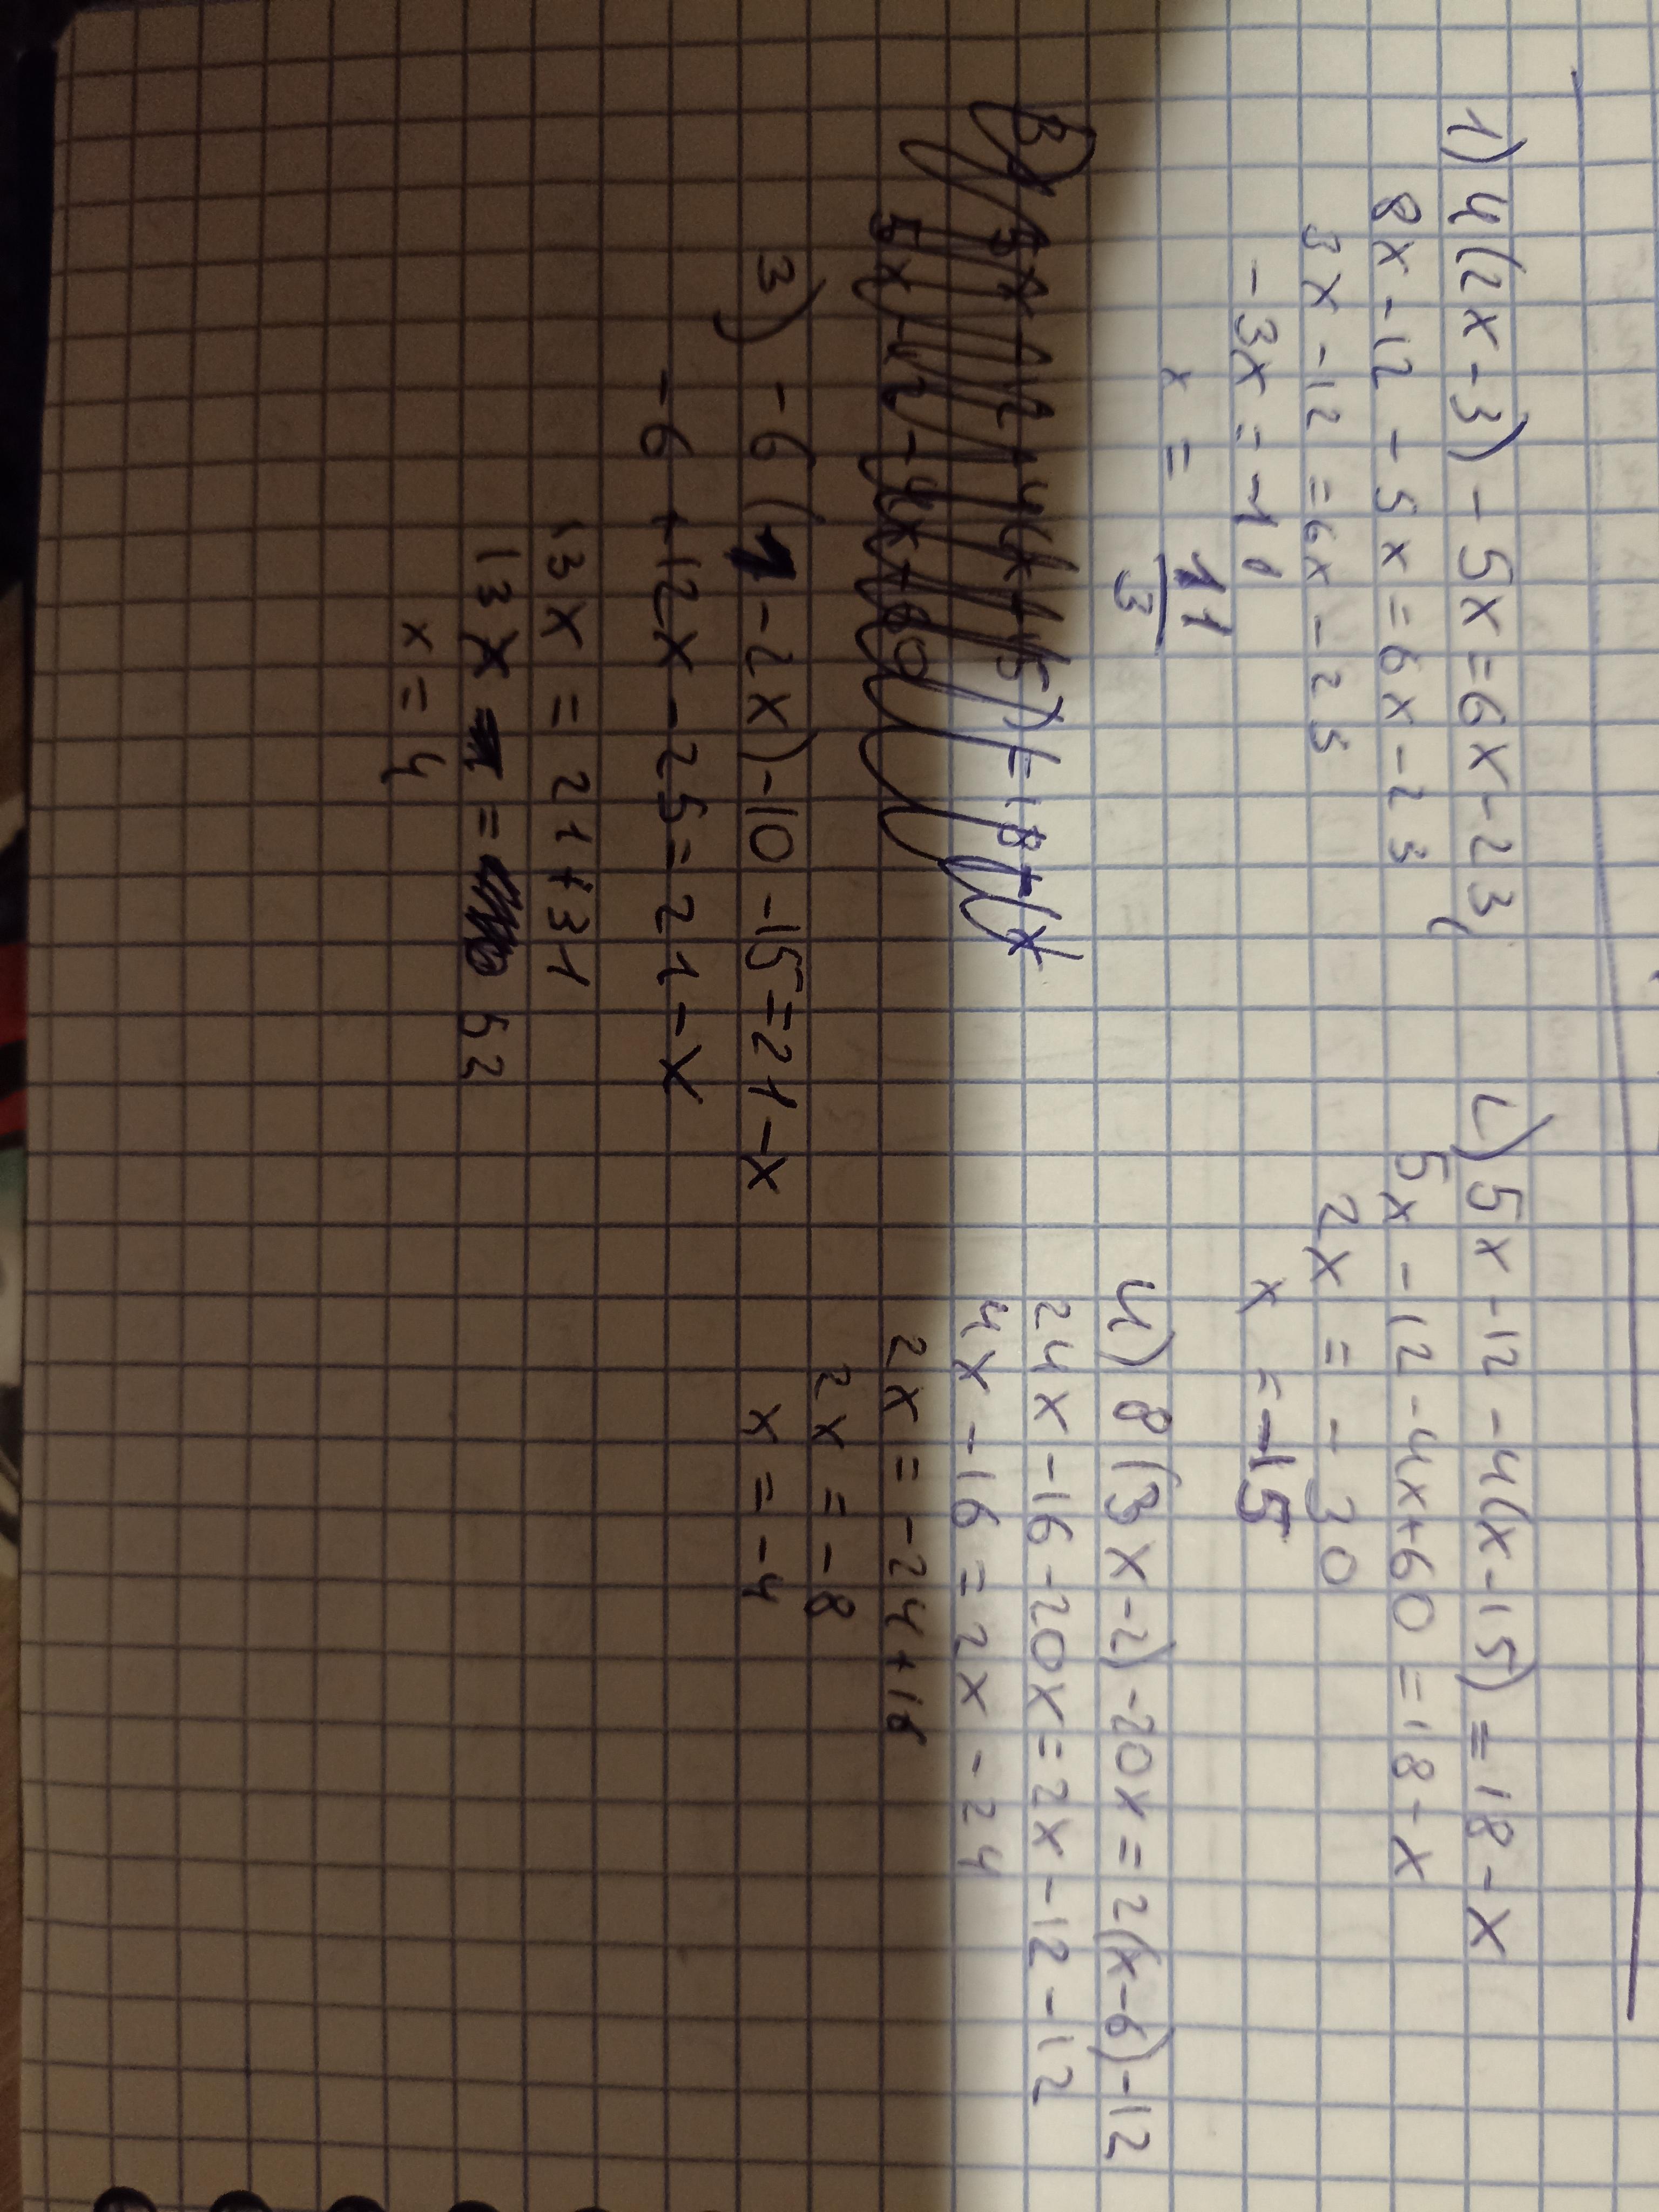 1) 4(2x-3) - 5x = 6x - 23
8x - 12 - 5x = 6x - 23
3x - 12 = 6x - 23
-3x = -11
x = 11/3
2) 5x - 12 - 4(x-15) = 18 - x
5x - 12 - 4x + 60 = 18 - x
2x = - 30
x = -15
3) -6(1-2x) - 10 - 15 = 21 - x
-6 + 12x - 25 = 21 - x
13x = 21 + 31
13x = 52
x = 4
4) 8(3x-2) - 20x = 2(x-6) - 12
24x - 16 - 20x = 2x - 12 - 12
4x - 16 = 2x - 24
2x = -24 + 16
2x = -8
x = -4